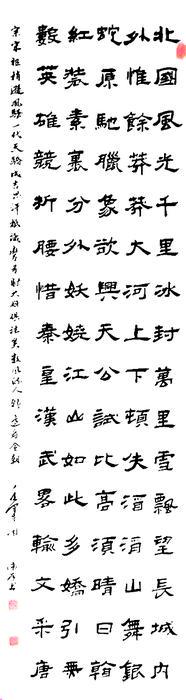 北國風光千里冰封萬里雪飄望長城內
外惟餘莽莽大河上下頓失滔滔山舞銀
蛇原馳臘象欲與天公試比高須晴日看
紅裝素裹分外妖嬈江山如此多嬌引無
數英雄競折腰惜秦皇漢武畧輸文采唐
宗宋祖稍遜風騷一代天驕成吉思汗祇識彎弓射大雕俱往矣數風流人物還看今朝